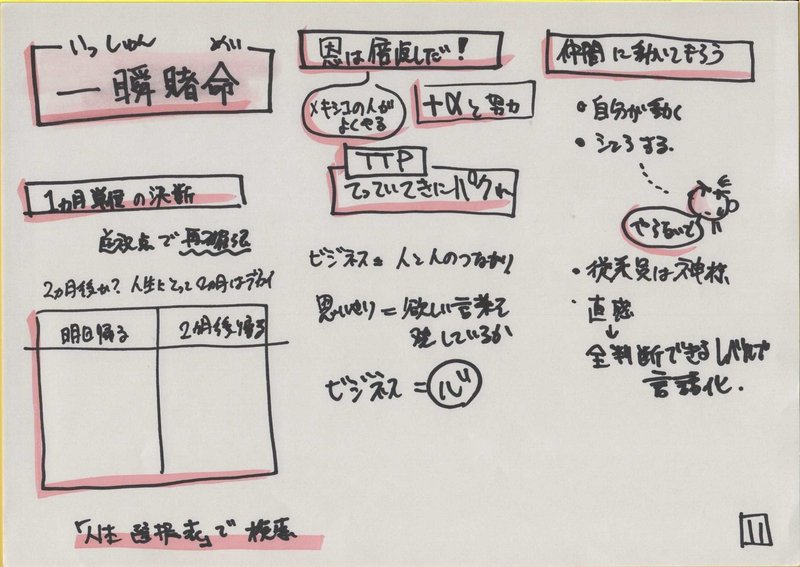 いっしゅん めい
一瞬賭命
1ヵ月単位の決断
で再確認
2ヵ月後か? 人生にとって2ヵ月はデカイ
明日帰る
2ヶ月後帰る
「人生選択表」で検索
恩は倍返しだ!
メキシコの人が
よくやる
+αと努力
TTP
てっていてきにパクれ
ビジネス= 人と人のつながり
思いやり=欲しい言葉を
発しているか
ビジネス=心
仲間に動いてもらう
・自分が動く
・シてろする。
やろるいと
・従業員は神様
・直感
↓
全判断できるレベルで
言語化.
11